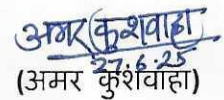 अमर कुशवाहा
27.6.25
(अमर कुशवाहा)